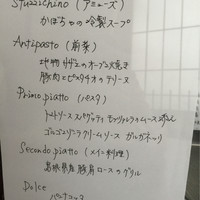 Stuzzichino (アミューズ)
かぼちゃの冷製スープ
Antipasto (前菜)
地物のオーブン焼き
豚肉とピスタチオのテリーヌ
Primo piatto (パスタ)
トマトソース スパゲッティ モッツァレラ
ゴルゴンゾーラクリームソース ガルガネッリ
Secondo piatto (メイン料理)
島根県産豚肩ロースのグリル
Dolce
パンナコッタ